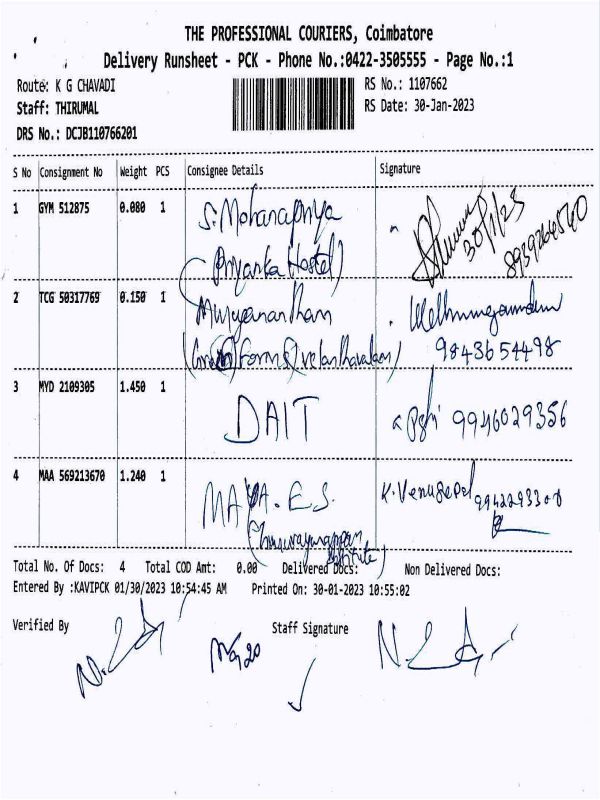 THE PROFESSIONAL COURIERS, Coimbatore
Delivery Runsheet - PCK - Phone No.:0422-3505555 - Page No.:1
Route: K G CHAVADI
RS No.: 1107662
Staff: THIRUMAL
RS Date: 30-Jan-2023
DRS No.: DCJB110766201
S No Consignment No Weight PCS Consignee Details Signature
1 GYM 512875 0.080 1 S. Mohanapriya
(Priyanka Hostel)
30/1/23
8939264540
2 TCG 50317769 0.150 1 Muruganantham
9843654498
3 MYD 2109305 1.450 1 DAIT 9946029356
4 MAA 569213670 1.240 1 MAYA. E.S. K. Venugopal
Total No. Of Docs: 4 Total COD Amt: 0.00 Delivered Docs: Non Delivered Docs:
Entered By :KAVIPCK 01/30/2023 10:54:45 AM Printed On: 30-01-2023 10:55:02
Verified By Staff Signature